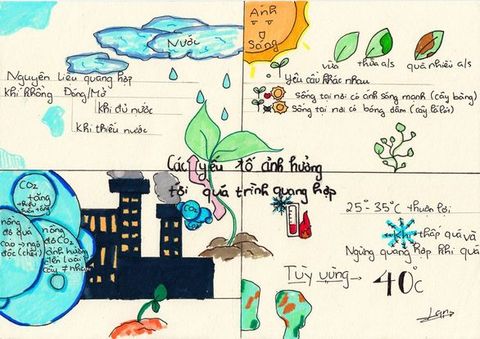 Nước
Nguyên Liệu quang hợp
Khí Khổng Đóng/Mở
khi đủ nước
khi thiếu nước
Ánh
Sáng
vừa thừa a/s quá nhiều a/s
Yêu cầu khác nhau
Sống tại nơi có ánh sáng mạnh (cây bàng)
Sống tại nơi có bóng dâm (cây lá lốt)
Các yếu tố ảnh hưởng
tới quá trình quang hợp
CO2
tăng
nồng
độ quá
cao → ngộ
độc (chết)
nồng
độ CO2
ảnh
hưởng
đến loài
cây ≠ nhau
CO2
25°-35°C thuận lợi
Khi thấp quá và
Ngừng quang hợp khi quá
Tùy vùng → 40°C
Lan